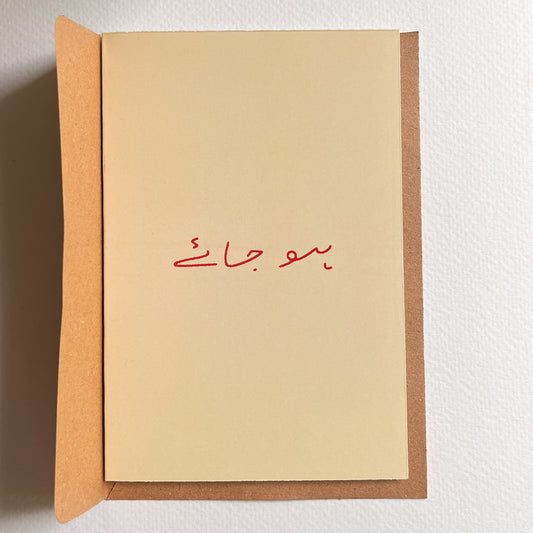 ہو جائے